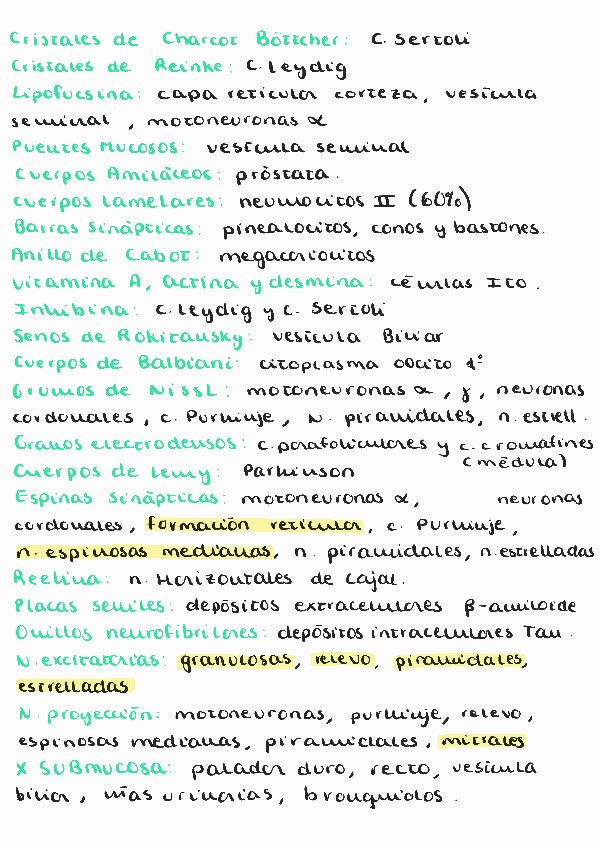 Cristales de Charcot Böttcher: C. Sertoli
Cristales de Reinke: C. Leydig
Lipofucsina: capa reticular corteza, vesícula
seminal, motoneuronas α
Puentes Mucosos: vesícula seminal
Cuerpos Amiláceos: próstata.
Cuerpos Lamelares: neumocitos II (60%)
Barras Sinápticas: pinealocitos, conos y bastones.
Anillo de Cabot: megacariocitos
Vitamina A, actina y desmina: células Ito.
Inhibina: C. Leydig y C. Sertoli
Senos de Rokitansky: vesícula Biliar
Cuerpos de Balbiani: citoplasma oocito 1º
Grumos de Nissl: motoneuronas α, γ, neuronas
cordonales, c. Purkinje, N. piramidales, n. estrell.
Granos electrodensos: c. parafoliculares y c. cromafines
(médula)
Cuerpos de Lewy: Parkinson
Espinas Sinápticas: motoneuronas α, neuronas
cordonales, formación reticular, c. Purkinje,
n. espinosas medianas, n. piramidales, n. estrelladas
Reelina: n. Horizontales de Cajal.
Placas seniles: depósitos extracelulares β-amiloide
Ovillos neurofibrilares: depósitos intracelulares Tau.
N. excitatorias: granulosas, relevo, piramidales,
estrelladas
N. proyección: motoneuronas, purkinje, relevo,
espinosas medianas, piramidales, mitrales
X SUBmucosa: paladar duro, recto, vesícula
biliar, vías urinarias, bronquiolos.